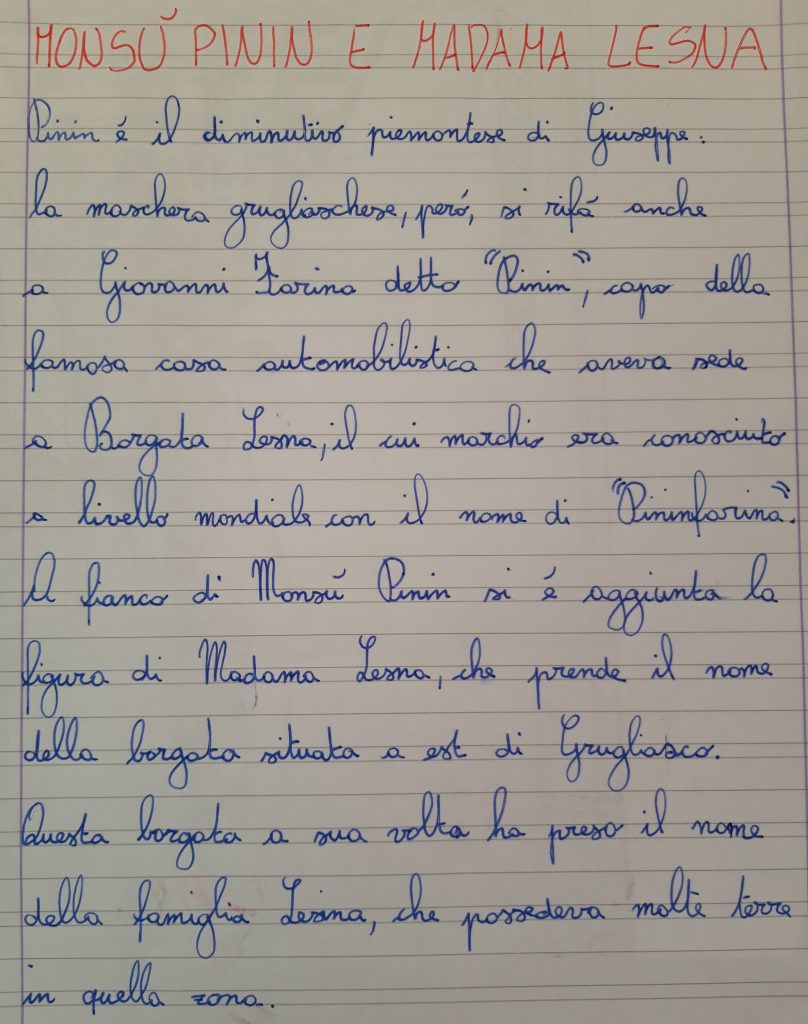 MONSÚ PININ E MADAMA LESNA
Pinin é il diminutivo piemontese di Giuseppe:
la maschera grugliaschese, peró, si rifá anche
a Giovanni Farina detto "Pinin", capo della
famosa casa automobilistica che aveva sede
a Borgata Lesna, il cui marchio era conosciuto
a livello mondiale con il nome di "Pininfarina".
A fianco di Monsú Pinin si é aggiunta la
figura di Madama Lesna, che prende il nome
della borgata situata a est di Grugliasco.
Questa borgata a sua volta ha preso il nome
della famiglia Lesina, che possedeva molte terre
in quella zona.